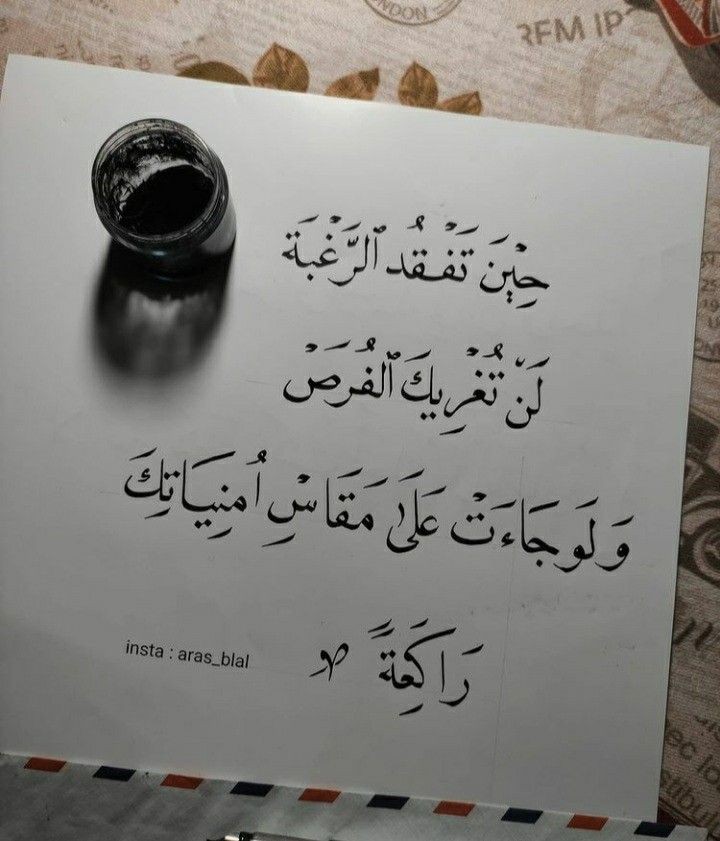 RFM IP
حِيْنَ تَفْقُد ٱلرَّغْبَةَ
لَنْ تُغْرِيكَ ٱلفُرَصْ
وَلَو جَاءَتْ عَلَىٰ مَقَاسْ أُمنِيَاتِكَ
رَاكِعَةً
insta : aras_blal